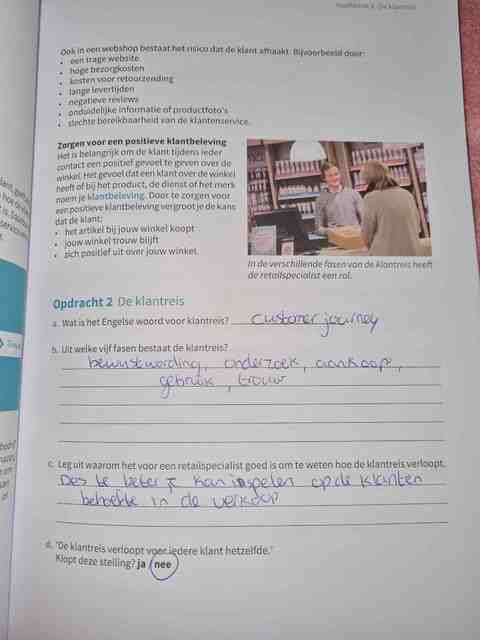 Hoofdstuk 3 De klantreis
Ook in een webshop bestaat het risico dat de klant afhaakt. Bijvoorbeeld door:
• een trage website
• hoge bezorgkosten
• kosten voor retourzending
• lange levertijden
• negatieve reviews
• onduidelijke informatie of productfoto's
• slechte bereikbaarheid van de klantenservice.
Zorgen voor een positieve klantbeleving
Het is belangrijk om de klant tijdens ieder
contact een positief gevoel te geven over de
winkel. Het gevoel dat een klant over de winkel
heeft of bij het product, de dienst of het merk
noem je klantbeleving. Door te zorgen voor
een positieve klantbeleving vergroot je de kans
dat de klant:
• het artikel bij jouw winkel koopt
• jouw winkel trouw blijft
• zich positief uit over jouw winkel.
In de verschillende fasen van de klantreis heeft
de retailspecialist een rol.
Opdracht 2 De klantreis
a. Wat is het Engelse woord voor klantreis? customer journey
b. Uit welke vijf fasen bestaat de klantreis?
bewustwording, onderzoek, aankoop,
gebruik, trouw
c. Leg uit waarom het voor een retailspecialist goed is om te weten hoe de klantreis verloopt.
Des te beter je kan inspelen op de klanten
behoefte in de verkoop
d. 'De klantreis verloopt voor iedere klant hetzelfde.'
Klopt deze stelling? ja / nee